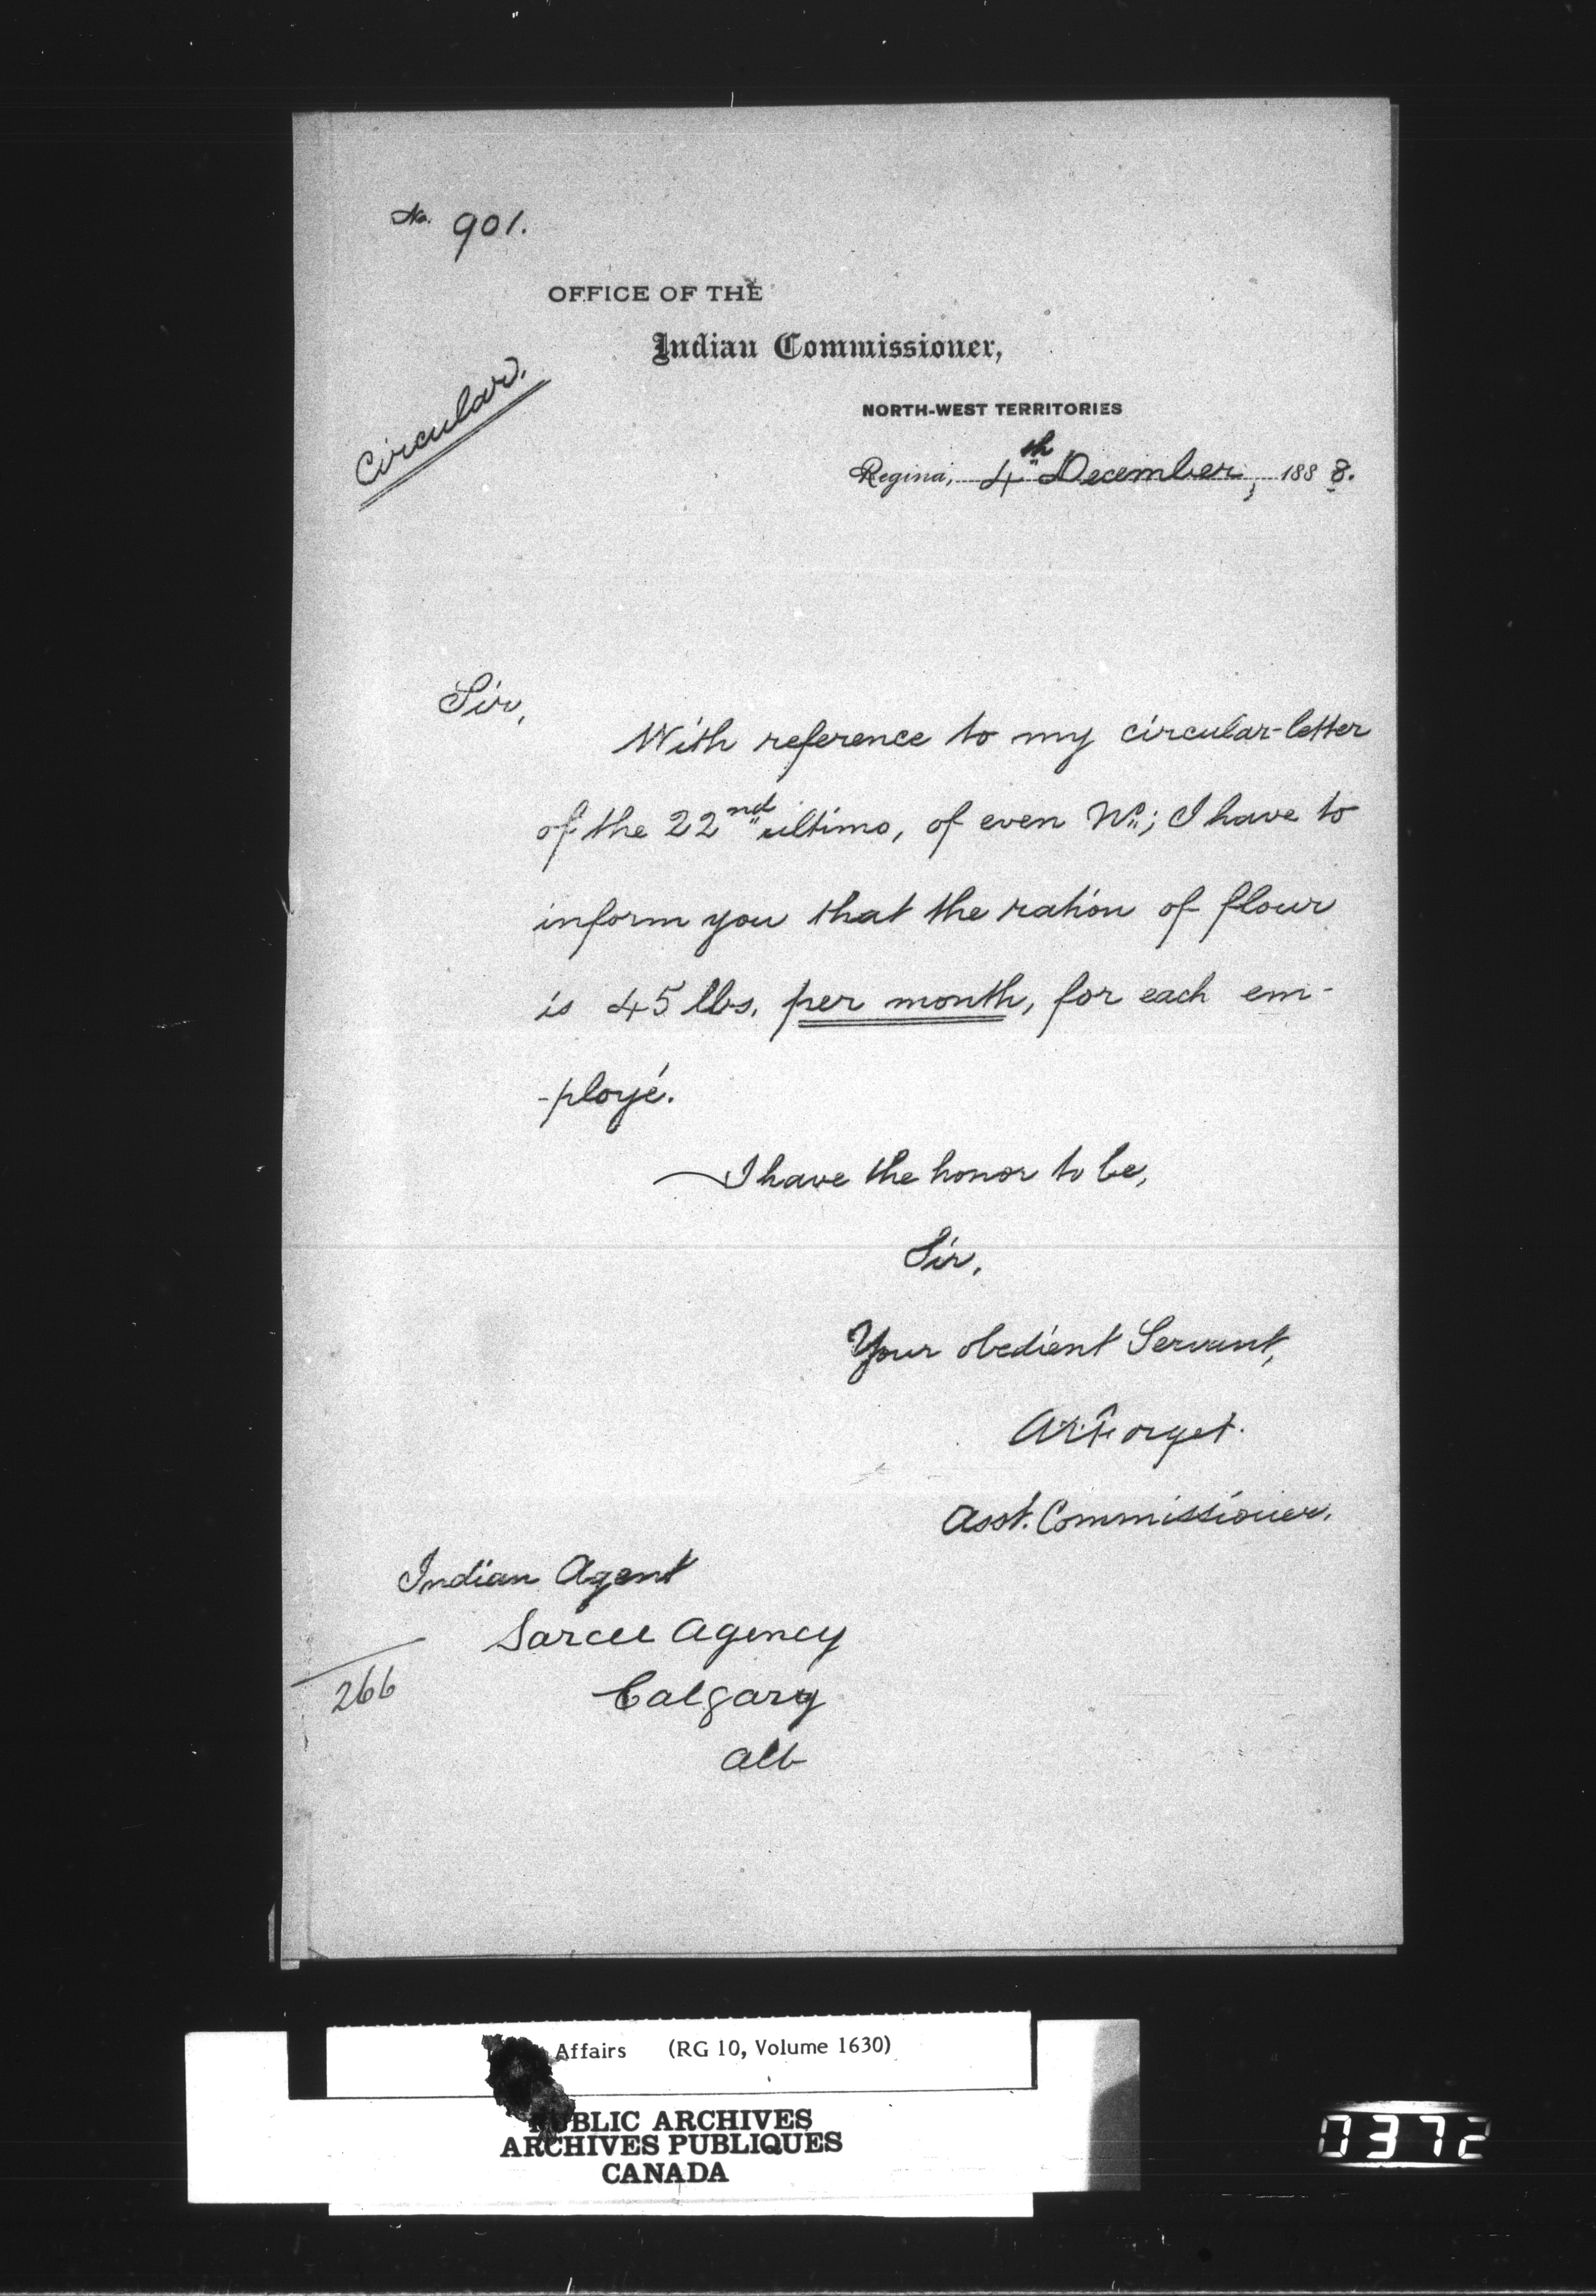 No. 901.
OFFICE OF THE
Indian Commissioner,
Circular.
NORTH-WEST TERRITORIES
Regina, 4th December, 1888.
Sir,
With reference to my circular-letter
of the 22nd ultimo, of even No; I have to
inform you that the ration of flour
is 45 lbs. per month, for each em-
-ployé.
I have the honor to be,
Sir,
Your obedient Servant,
A.E. Forget.
Asst. Commissioner.
Indian Agent
Sarcee Agency
266
Calgary
Alb
Affairs (RG 10, Volume 1630)
PUBLIC ARCHIVES
ARCHIVES PUBLIQUES
CANADA
0372